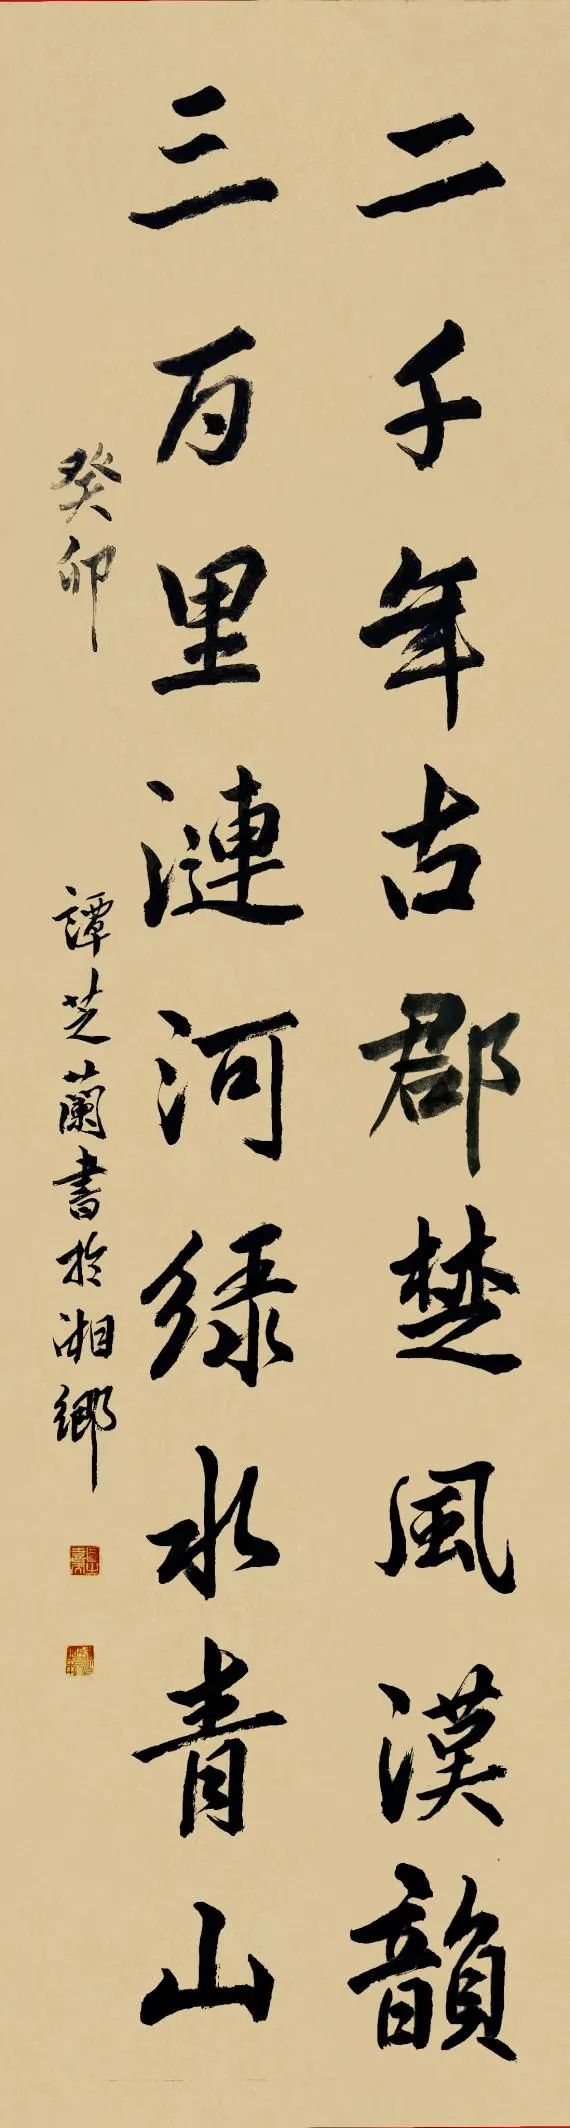 二千年古郡楚風漢韻
三百里漣河綠水青山
癸卯
譚芝蘭書於湘鄉